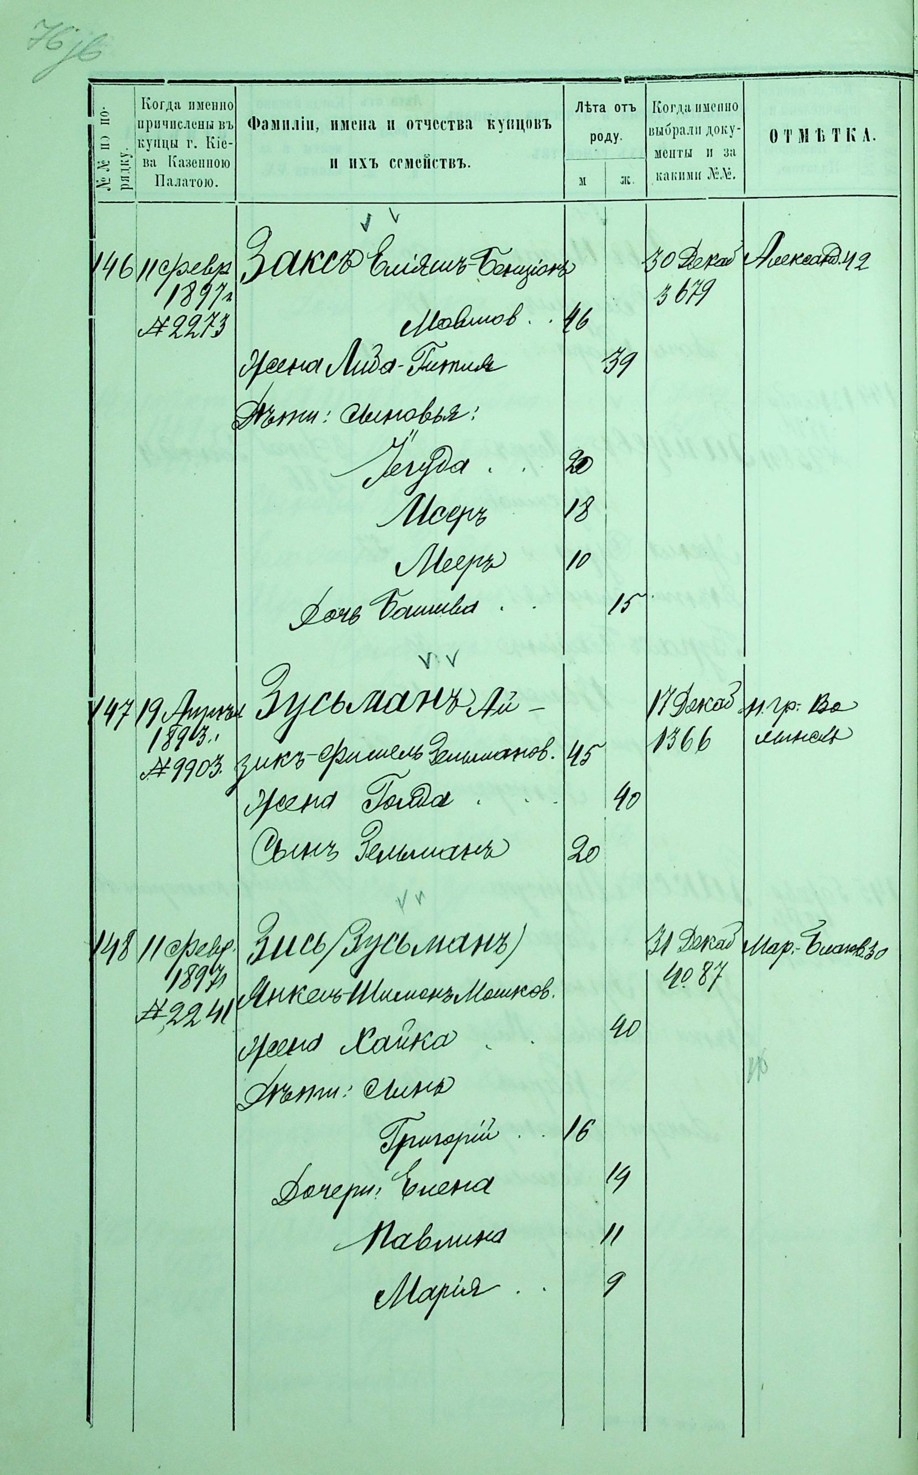 №№ по порядку.
Когда именно причислены въ купцы г. Кіева Казенною Палатою.
Фамиліи, имена и отчества купцовъ и ихъ семействъ.
Лѣта отъ роду.
м
ж.
Когда именно выбрали документы и за какими №№.
ОТМѢТКА.
146 11 февр Заксъ Еліяшъ-Бенціонъ 30 Декаб Александ. 42
1897 г 3679
№ 2273 Мовшов. . 46
Жена Лиза-Гитля 39
Дѣти: сыновья:
Іегуда . . 20
Исеръ 18
Мееръ 10
Дочь Башива . . 15
147 19 Апрѣл Зусьманъ Ай- 17 Декаб н. гр. Во
1893. 1366 линск
№ 9903. зикъ-Фишель Зельманов. 45
Жена Голда . . . 40
Сынъ Зельманъ 20
148 11 февр. Зись (Зусьманъ) 31 Декаб Мар.-Благов. 30
1897 4087
№ 2241 Янкель-Шимонъ Мошков.
Жена Хайка . . 40
Дѣти: сынъ
Григорій . . 16
Дочери: Елена 19
Павлина 11
Марія . . 9